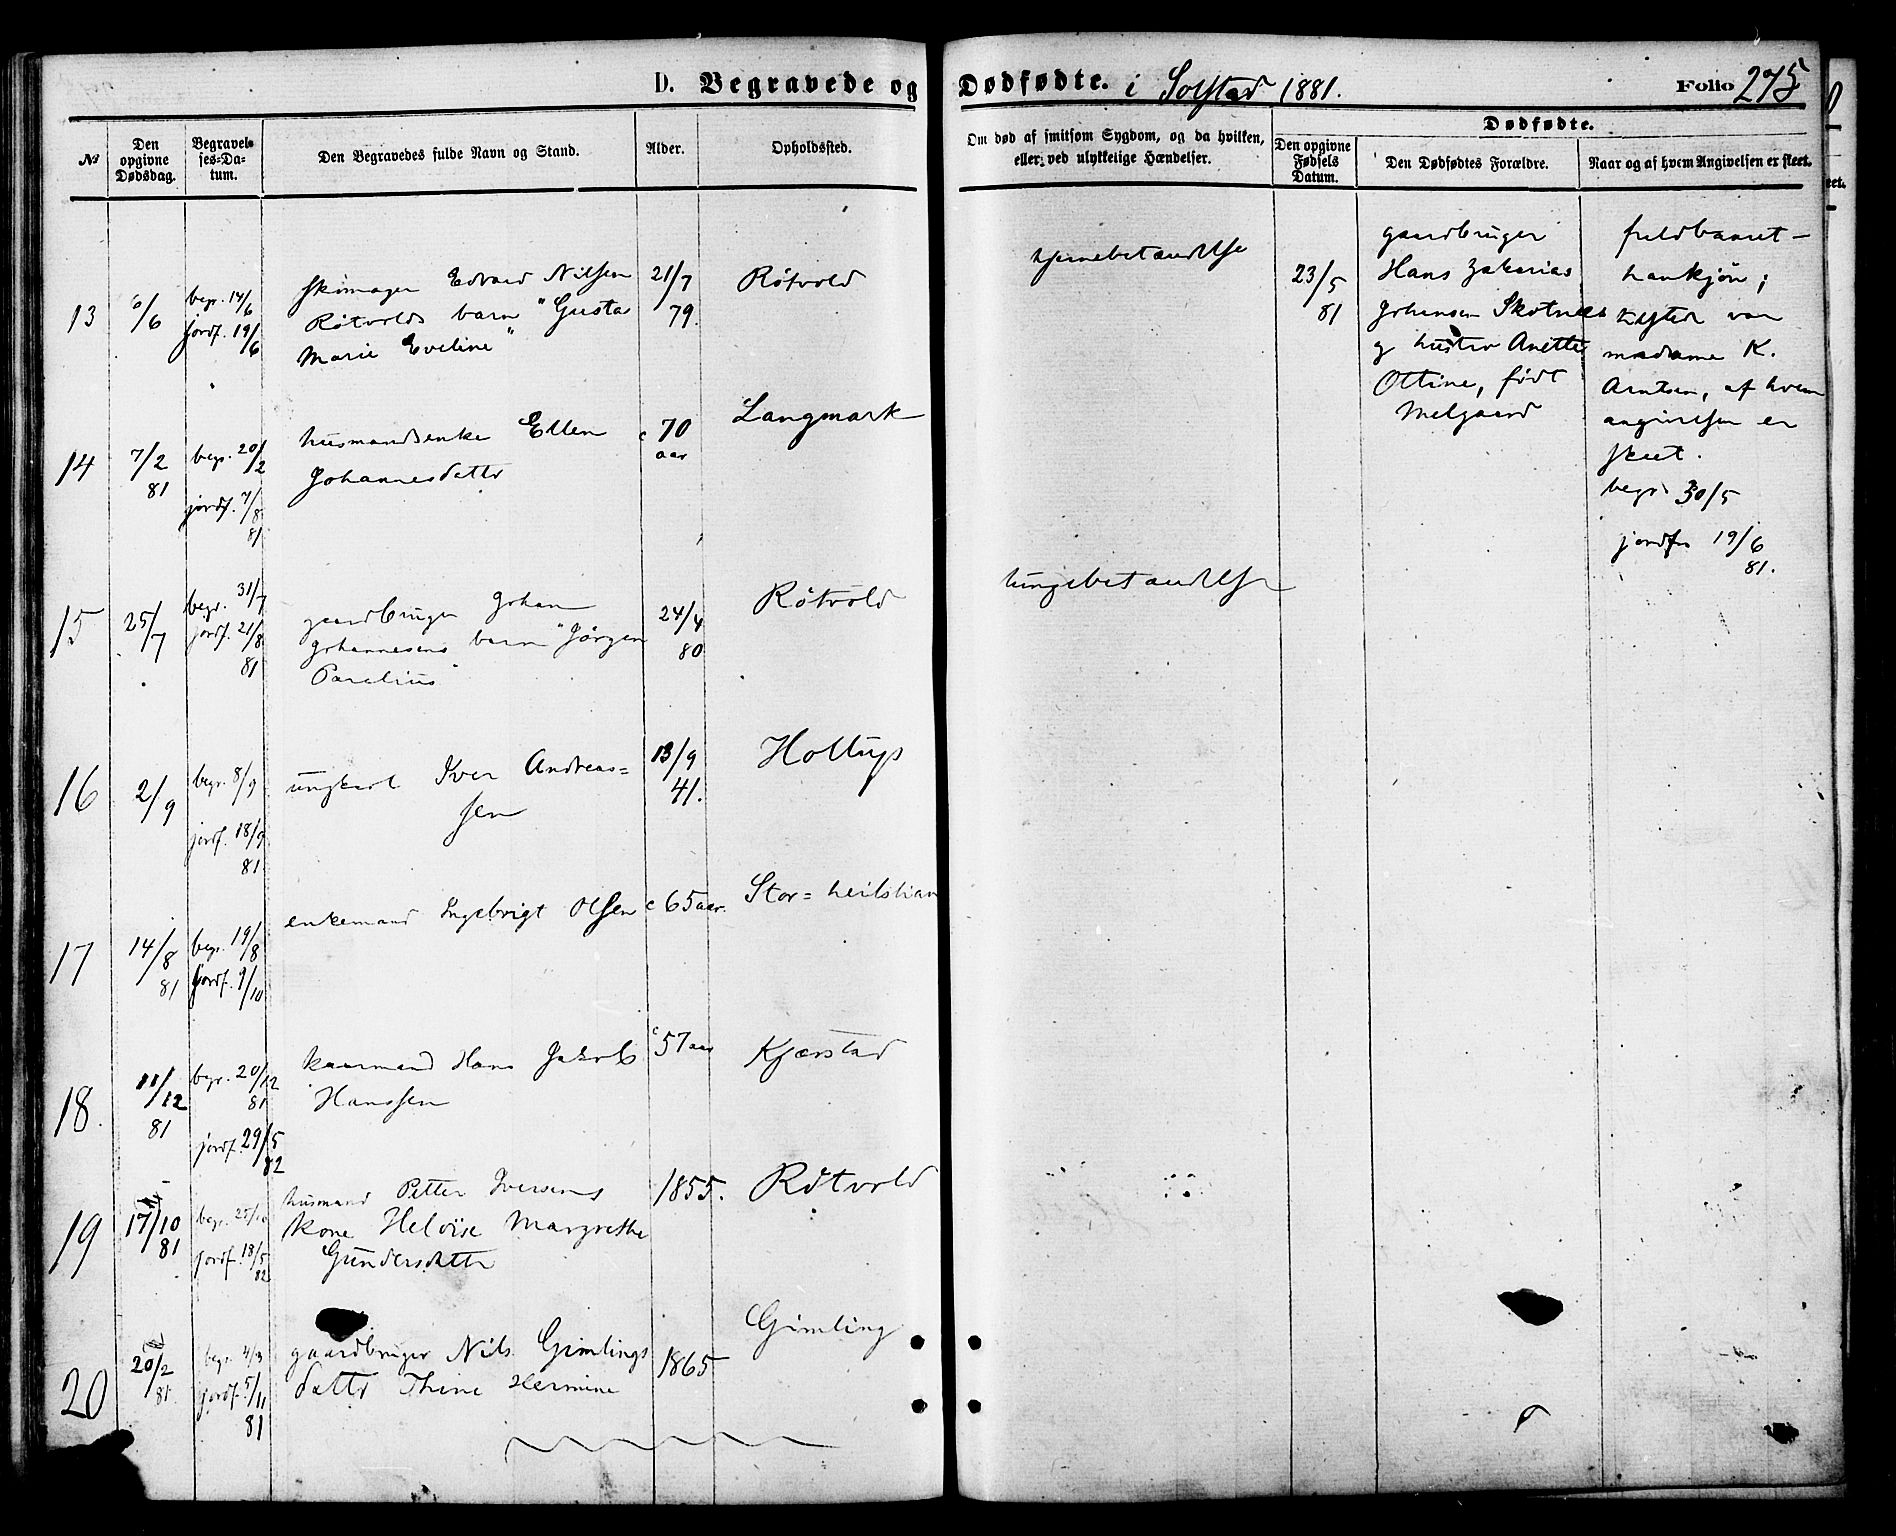 D. Begravede og Dødfødte. i Solstad 1881. Folio 275
№
Den opgivne Dødsdag.
Begravelses-Datum.
Den Begravedes fulde Navn og Stand.
Alder.
Opholdssted.
Om død af smitsom Sygdom, og da hvilken,
eller ved ulykkelige Hændelser.
Dødfødte.
Den opgivne Fødsels Datum.
Den Dødfødtes Forældre.
Naar og af hvem Angivelsen er skeet.
13
6/6
begr. 14/6
jordf. 19/6
skomager Edvard Nilsen
Røtvolds barn "Gusta
Marie Eveline"
21/7
79.
Røtvold
hjernebetændelse
14
7/2
81
begr. 20/2
jordf. 7/8
81
husmandsenke Ellen
Johannesdattr
c 70
aar
Langmark
15
25/7
begr. 31/7
jordf. 21/8
81
gaardbruger Johan
Johannesens barn "Jørgen
Parelius"
24/4
80
Røtvold
lungebetændelse
16
2/9
begr. 8/9
jordf. 18/9
81
ungkarl Iver Andreas=
sen
13/9
41.
Holtugs
17
14/8
81
begr. 19/8
jordf. 9/10
enkemand Ingebrigt Olsen
c 65 aar.
Stor=
18.
11/12
81
begr. 20/12
81
jordf. 29/5
82
kaarmand Hans Jakob
Hanssen
c 57 aar
Kjærstad
19
17/10
81
begr. 25/10
jordf. 18/5
82
husmand Petter Iversens
kone Heloise Margrethe
Gundersdattr
1855.
Røtvold
20
20/2
81
begr. 4/3
jordf. 5/11
81
gaardbruger Nils Gimlings
dattr Thine Hermine
1865
Gimling
23/5
81
gaardbruger
Hans Zakarias
Johansen Skotnes
g hustru Anette
Ottine, født
Melgaard
fuldbaaret
hankjøn;
tilsted var
madame K.
Arntsen, af hvem
angivelsen er
skeet.
begr. 30/5
jordf. 19/6
81.